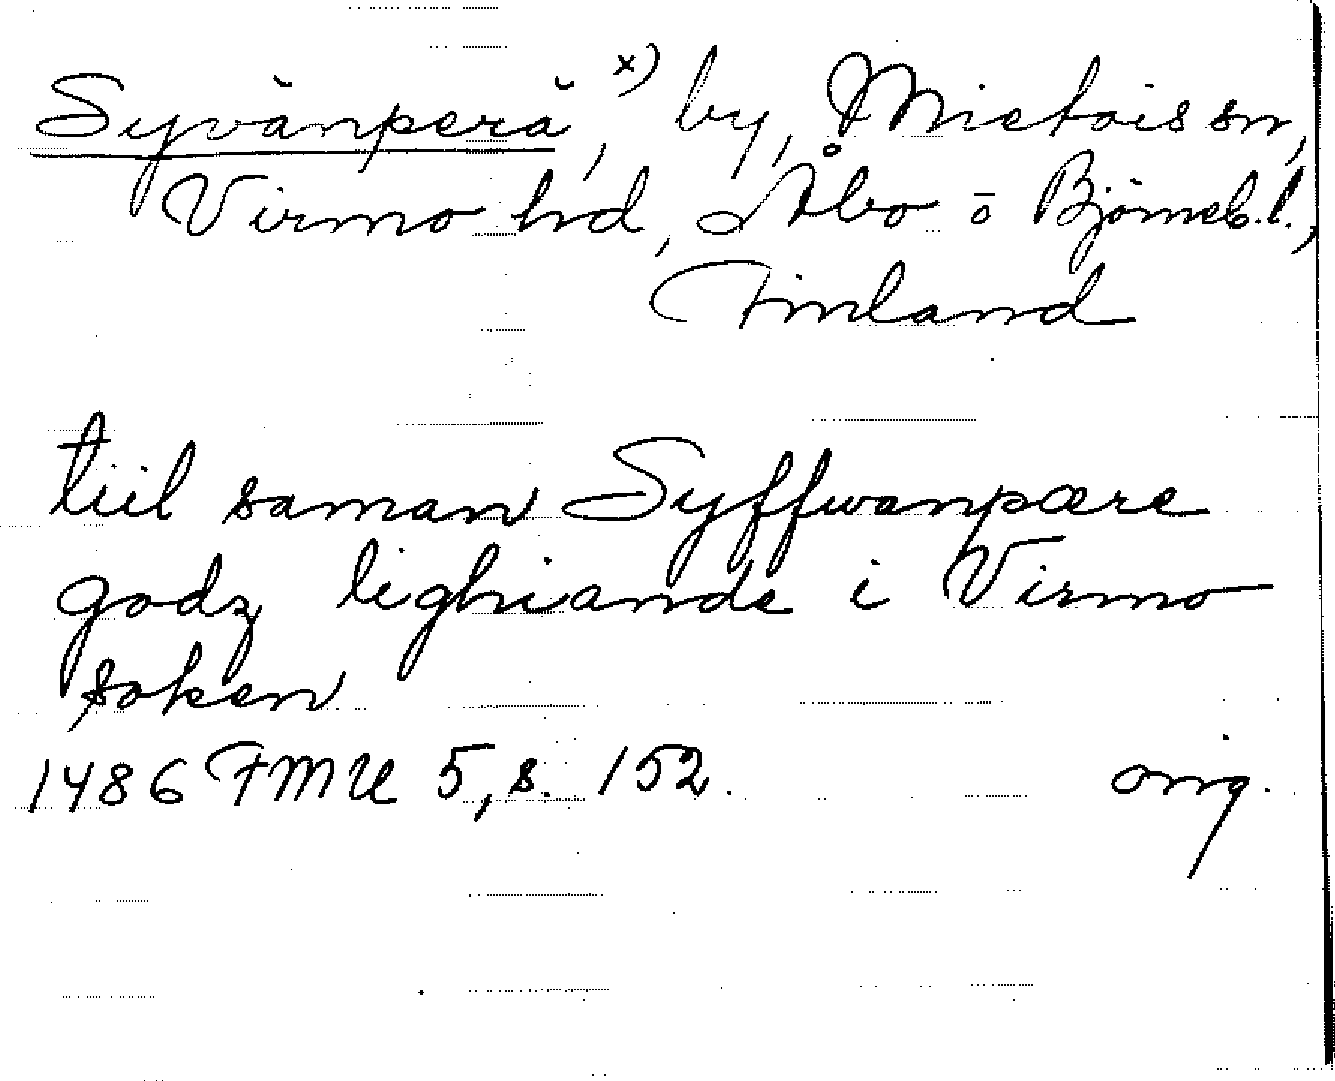 Syvänperä, x) by, Mietois sn,
Virmo hd, Åbo o Björneb. l.,
Finland
tiil saman Syffwanpære
godz lighiande i Virmo
soken
1486 FMU 5, s. 152. orig.